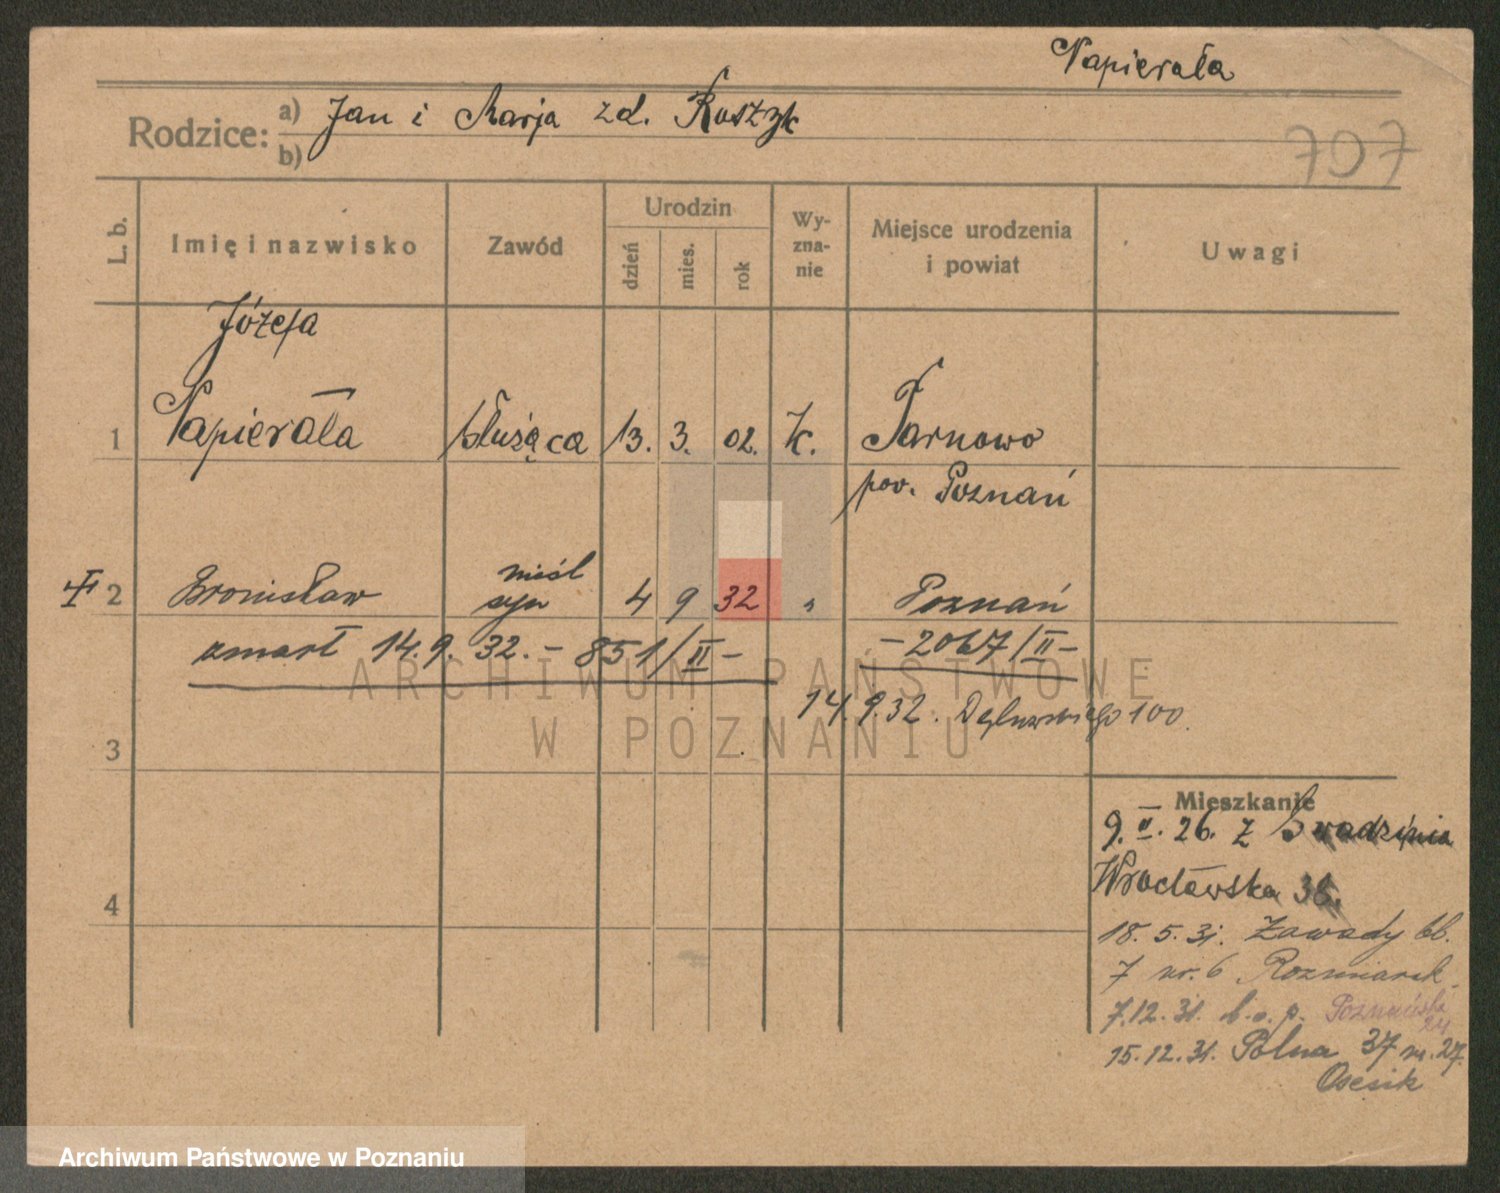 Napierała
Rodzice: a) Jan i Marja zd. Roszyk
b)
707
L. b.
Imię i nazwisko
Zawód
Urodzin
dzień
mies.
rok
Wy-
zna-
nie
Miejsce urodzenia
i powiat
Uwagi
Józefa
1 Napierała służąca 13. 3. 02. k. Tarnowo
pow. Poznań
nieśl
2 Bronisław syn 4 9 32 " Poznań
zmarł 14.9. 32. - 851/II -
- 2067/II -
14.9.32. 100
3
Mieszkanie
9.II.26. z
Wrocławska
4
18.5.31. Zawady bl.
7 nr. 6
7.12.31. b.o.p. Poznańska
24
15.12.31. Polna 37 m. 27.
ARCHIWUM PAŃSTWOWE
W POZNANIU
Archiwum Państwowe w Poznaniu